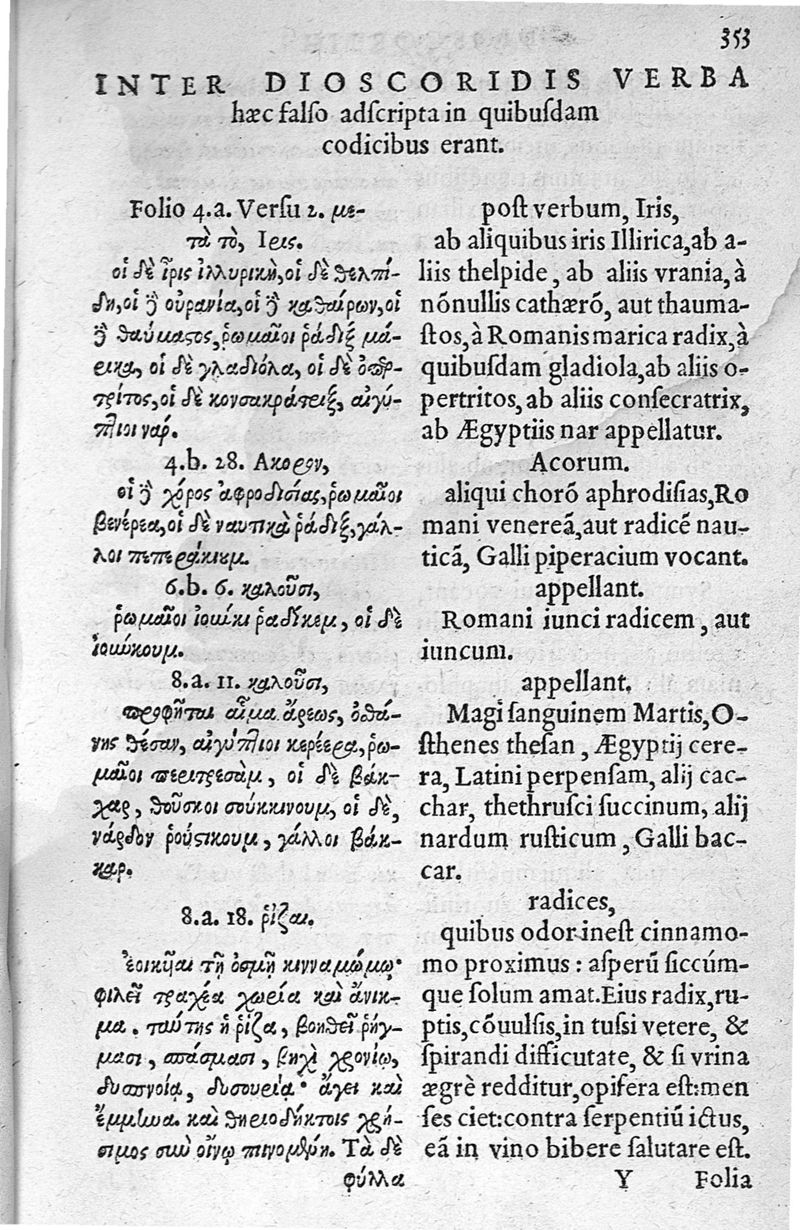 353
INTER DIOSCORIDIS VERBA
hæc falſo adſcripta in quibuſdam
codicibus erant.
Folio 4.a. Verſu 2. με-
τὰ τὸ, Ιρις.
οἱ δὲ ἶρις ἰλλυρικὴ, οἱ δὲ θελπί-
δη, οἱ δὲ οὐρανία, οἱ δὲ καθαίρων, οἱ
δὲ θαύμαστος, ῥωμαῖοι ῥάδιξ μά-
ρικα, οἱ δὲ γλαδιόλα, οἱ δὲ ὀπερ-
τρίτος, οἱ δὲ κονσακράτριξ, αἰγύ-
πτιοι ναρ.
4.b. 28. Ακορον,
οἱ δὲ χόρος ἀφροδισίας, ῥωμαῖοι
βενέρεα, οἱ δὲ ναυτικὰ ῥάδιξ, γάλ-
λοι πεπεράκιουμ.
6.b. 6. καλοῦσι,
ῥωμαῖοι ἰουίκι ῥαδίκεμ, οἱ δὲ
ἰουίκουμ.
8.a. 11. καλοῦσι,
προφῆται αἷμα ἄρεως, ὀσθά-
νης θέσαν, αἰγύπτιοι κερέερα, ῥω-
μαῖοι περιτρεσὰμ, οἱ δὲ βάκ-
χαρ, θοῦσκοι σούκκινουμ, οἱ δὲ,
νάρδον ῥούστικουμ, γάλλοι βάκ-
καρ.
8.a. 18. ῥίζαι.
ἐοικυῖαι τῇ ὀσμῇ κινναμώμῳ·
φιλεῖ τραχέα χωρία καὶ ἄνικ-
μα. ταύτης ἡ ῥίζα, βοηθεῖ ῥήγ-
μασι, σπάσμασι, βηχὶ χρονίῳ,
δυσπνοίᾳ, δυσουρίᾳ· ἄγει καὶ
ἔμμηνα. καὶ θηριοδήκτοις χρή-
σιμος σὺν οἴνῳ πινομένη. Τὰ δὲ
φύλλα
poſt verbum, Iris,
ab aliquibus iris Illirica, ab a-
liis thelpide, ab aliis vrania, à
nōnullis cathærō, aut thauma-
ſtos, à Romanis marica radix, à
quibuſdam gladiola, ab aliis o-
pertritos, ab aliis conſecratrix,
ab Ægyptiis nar appellatur.
Acorum.
aliqui chorō aphrodiſias, Ro
mani venereā, aut radicē nau-
ticā, Galli piperacium vocant.
appellant.
Romani iunci radicem, aut
iuncum.
appellant.
Magi ſanguinem Martis, O-
ſthenes theſan, Ægyptij cere-
ra, Latini perpenſam, alij cac-
char, thethruſci ſuccinum, alij
nardum ruſticum, Galli bac-
car.
radices,
quibus odor ineſt cinnamo-
mo proximus: aſperū ſiccúm-
que ſolum amat. Eius radix, ru-
ptis, cōuulſis, in tuſsi vetere, &
ſpirandi difficutate, & ſi vrina
ægrè redditur, opifera eſt: men
ſes ciet: contra ſerpentiū ictus,
eā in vino bibere ſalutare eſt.
Y Folia